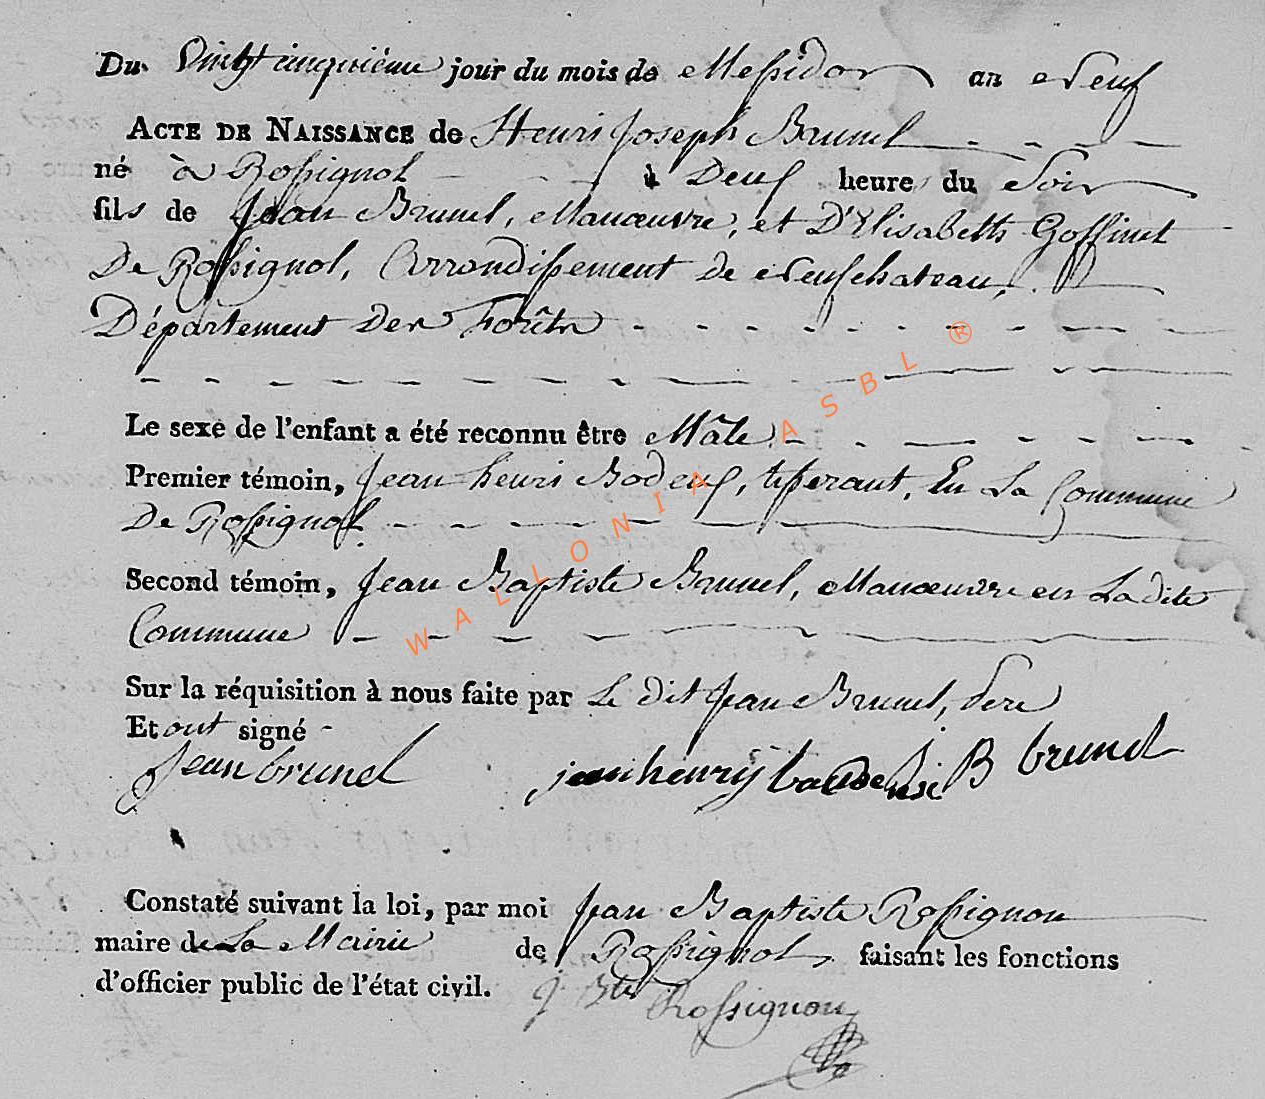 Du Vingt cinquième jour du mois de Messidor an Neuf
ACTE DE NAISSANCE de Henri Joseph Brunel
né à Rossignol à Deux heure du Soir
fils de Jean Brunel, Manœuvre, et D'Elisabeth Goffinet
De Rossignol, Arrondissement de Neufchateau,
Département Des Forêts
Le sexe de l'enfant a été reconnu être Mâle
Premier témoin, Jean henri Bodeux, tisserant, En La Commune
De Rossignol.
Second témoin, Jean Baptiste Brunel, Manœuvre en La dite
Commune
Sur la réquisition à nous faite par Le dit Jean Brunel, Pere
Et ont signé
Jean brunel jean henry B brunel
Constaté suivant la loi, par moi Jean Baptiste Rossignon
maire de La Mairie de Rossignol, faisant les fonctions
d'officier public de l'état civil. J Bte Rossignon
WALLONIA ASBL ®